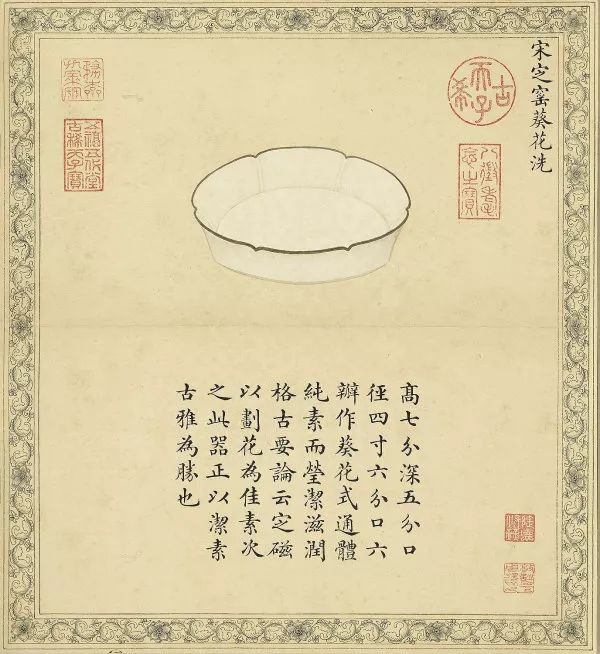 宋㝎窰葵花洗
古希天子
八徵耄念之寶
髙七分深五分口
徑四寸六分口六
瓣作葵花式通體
純素而瑩潔滋潤
格古要論云㝎磁
以劃花為佳素次
之此器正以潔素
古雅為勝也
五福五代堂
古稀天子寶